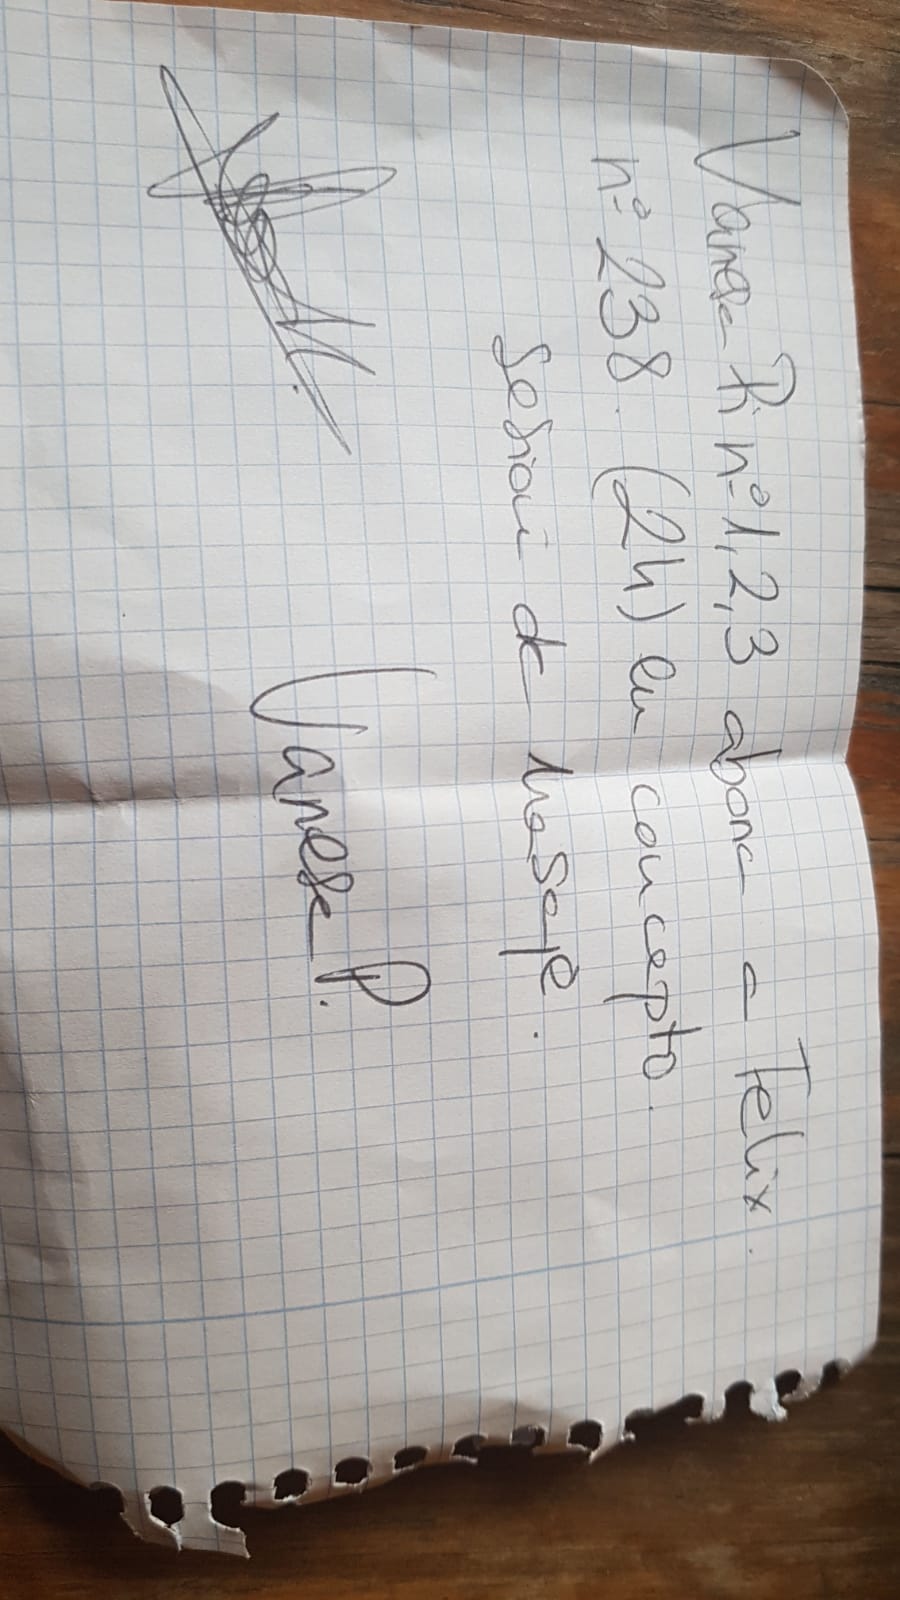 Vanesa P. nº 1, 2, 3 abona a Felix.
nº 238. (2h) en concepto.
Sesion de masaje.
Vanesa P.